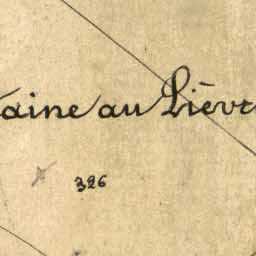 aine au Lièvr
326